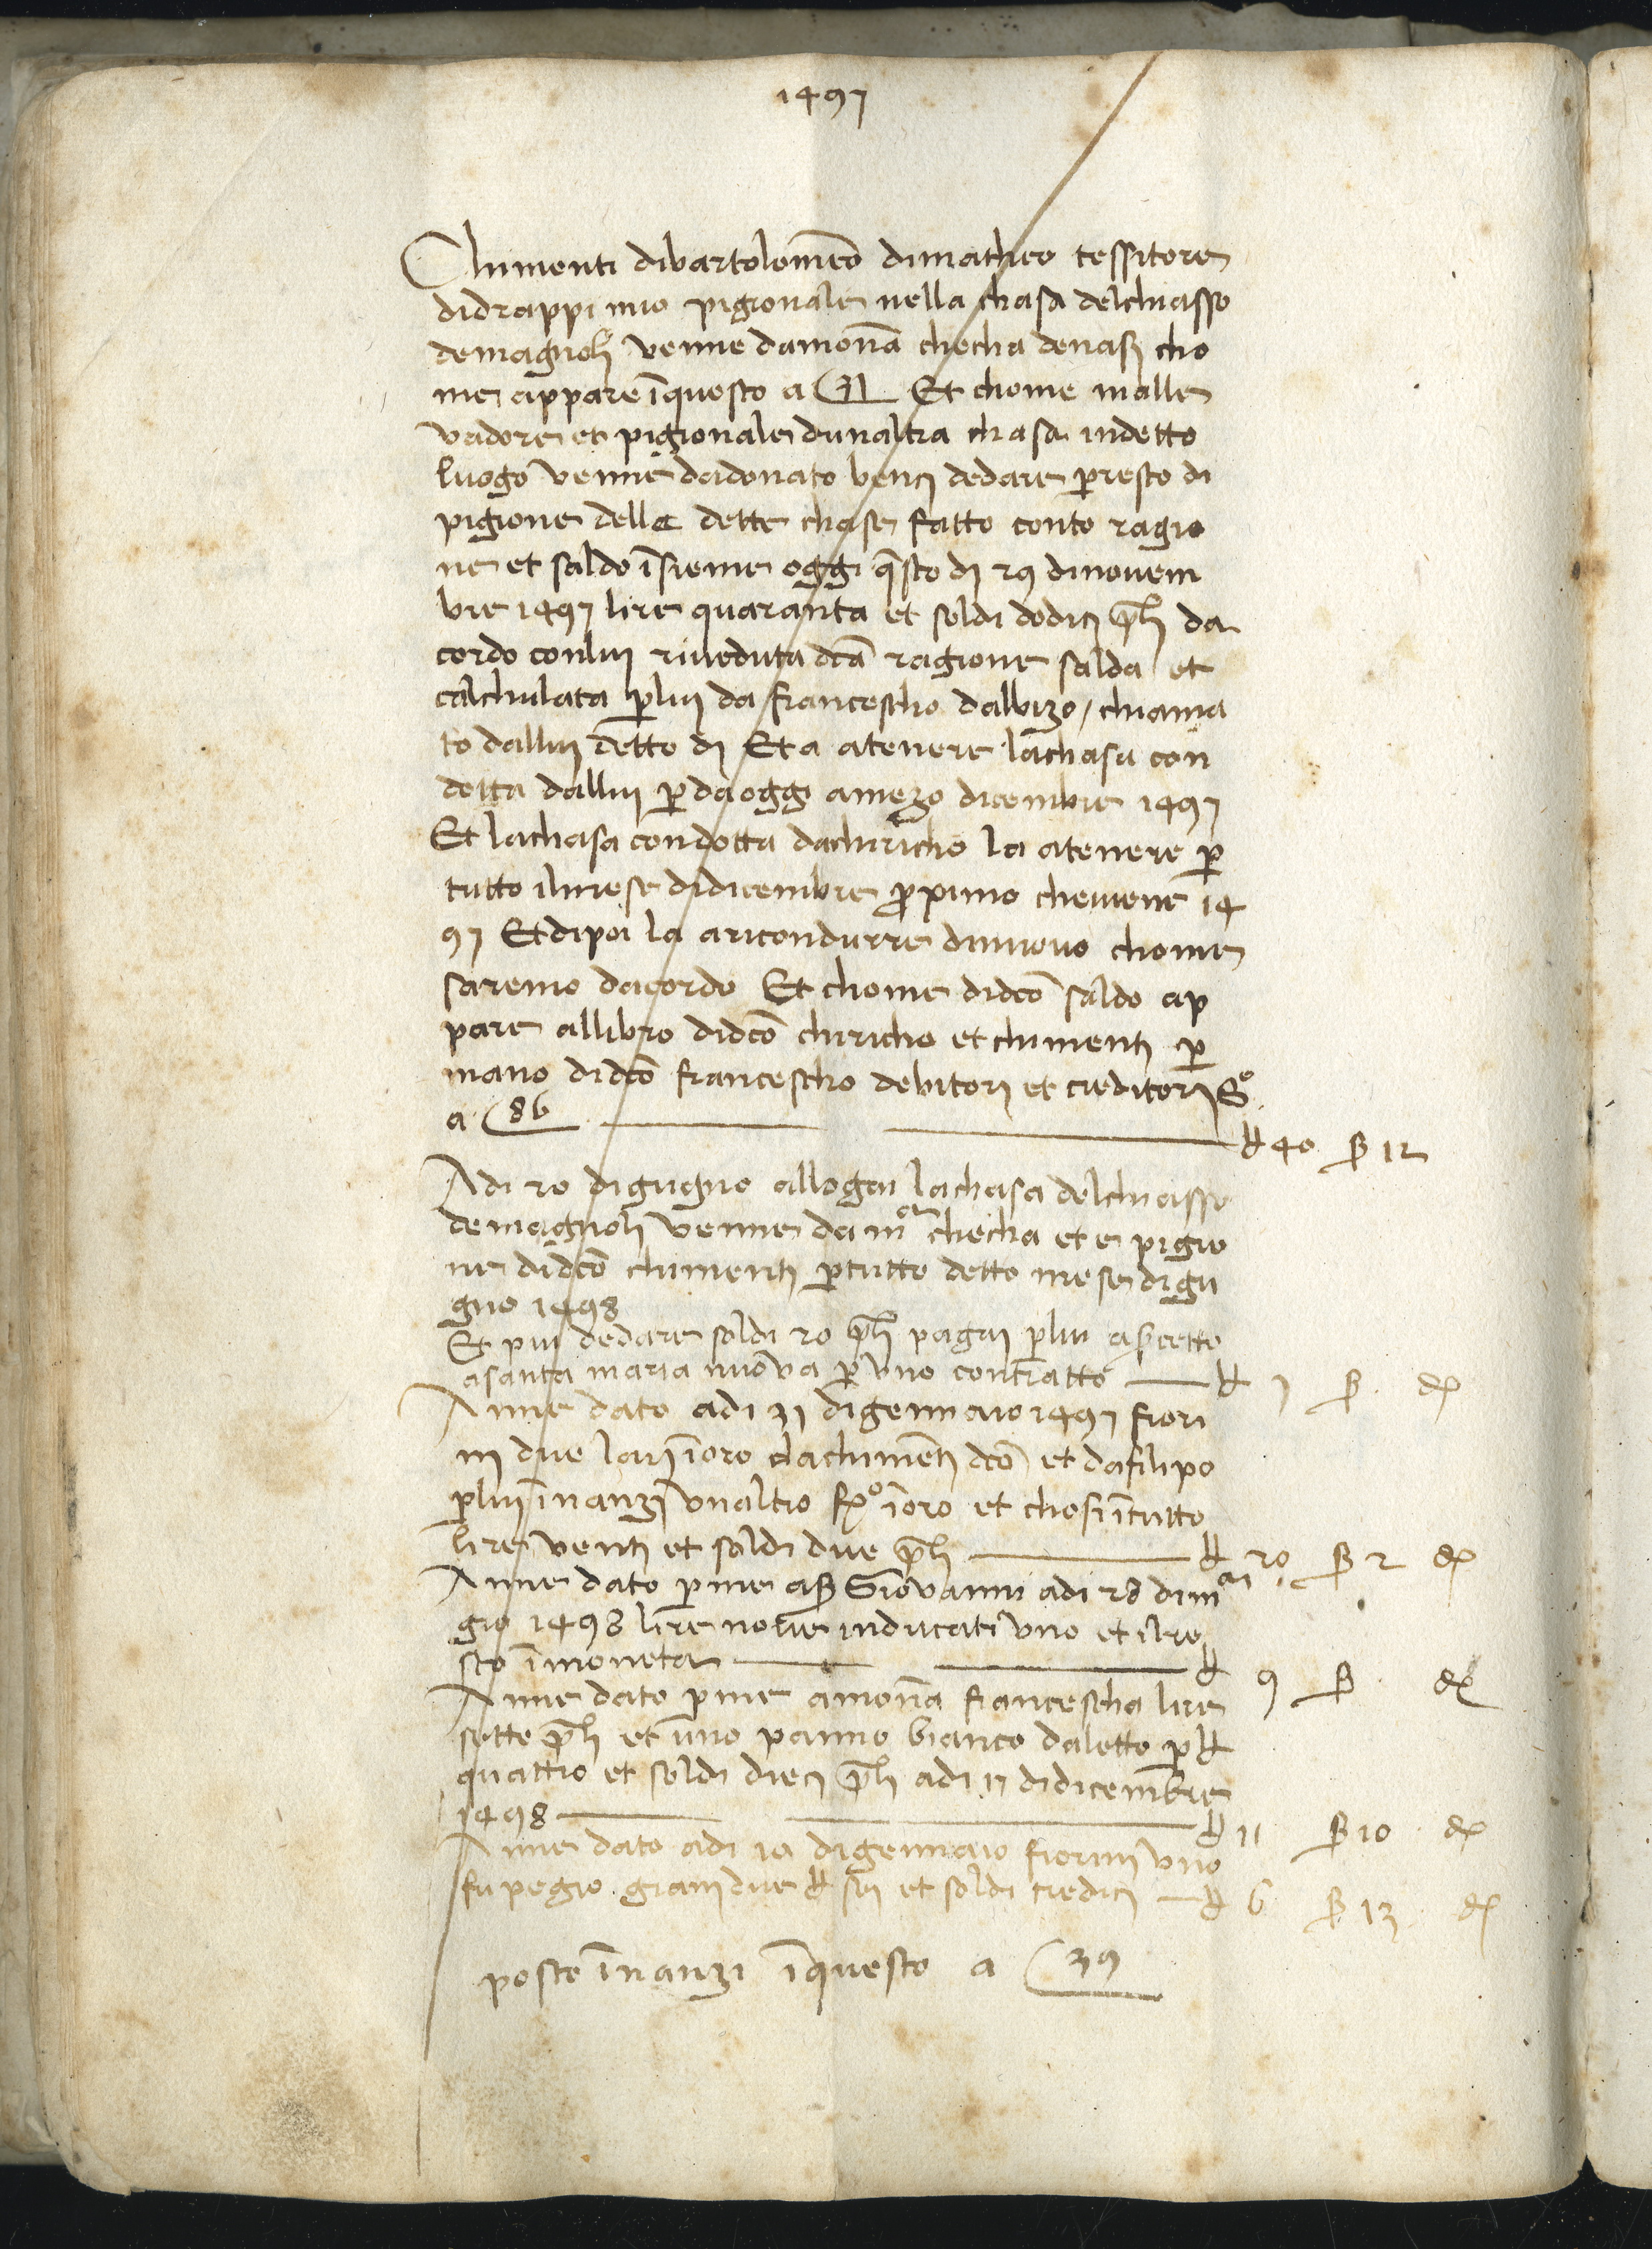 1497
Chimenti dibartolomeo dimatheo tessitore
didrappi mio pigionale nella chasa delchiasso
demagnoli venne damona checha denasi cho
me appare iquesto a 31 Et chome malle
vadore et pigionale dunaltra chasa indetto
luogo venne dadonato benci dedare p resto di
pigione delle dette chase fatto conto ragio
ne et saldo isieme oggi qsto di 29 dinovem
bre 1497 lire quaranta et soldi dodici pli da
cordo conlui riveduta dca ragione salda et
calchulata p lui da francescho dalbizo / chiama
to dallui detto di Et a atenere lachasa con
dotta dallui p da oggi amezo dicembre 1497
Et lachasa condotta dachiricho la atenere p
tutto ilmese didicembre propimo cheviene 14
97 Et dipoi la aricondurre dinuovo chome
saremo dacordo Et chome didco saldo ap
pare allibro didco chiricho et chimenti p
mano didco francescho debitori et creditori So
a 86 ₶ 40 ß 12
Adi 20 digugno allogai lachasa delchiasso
demagnoli venne da ma checha et e pigio
ne didco chimenti p tutto detto mese digu
gno 1498
Et piu dedare soldi 20 pli pagai p lui
asanta maria nuova p uno contratto ₶ 1 ß d
Anne dato adi 31 digennaio 1497 fiori
ni due lari ioro dachimenti dco et dafilipo
p lui inanzi unaltro fo ioro et chosi itutto
lire venti et soldi due pli ₶ 20 ß 2 d
Anne dato p me a s Giovanni adi 28 dima
gio 1498 lire nove inducati uno et ilre
sto imoneta ₶ 9 ß d
Anne dato p me amona francescha lire
sette pli et uno panno bianco daletto p ₶
quattro et soldi dieci pli adi 17 didicembre
1498 ₶ 11 ß 10 d
Anne dato adi 10 digennaio fiorini uno
fu pegio grani due ₶ sei et soldi tredici ₶ 6 ß 13 d
posto inanzi iquesto a 39